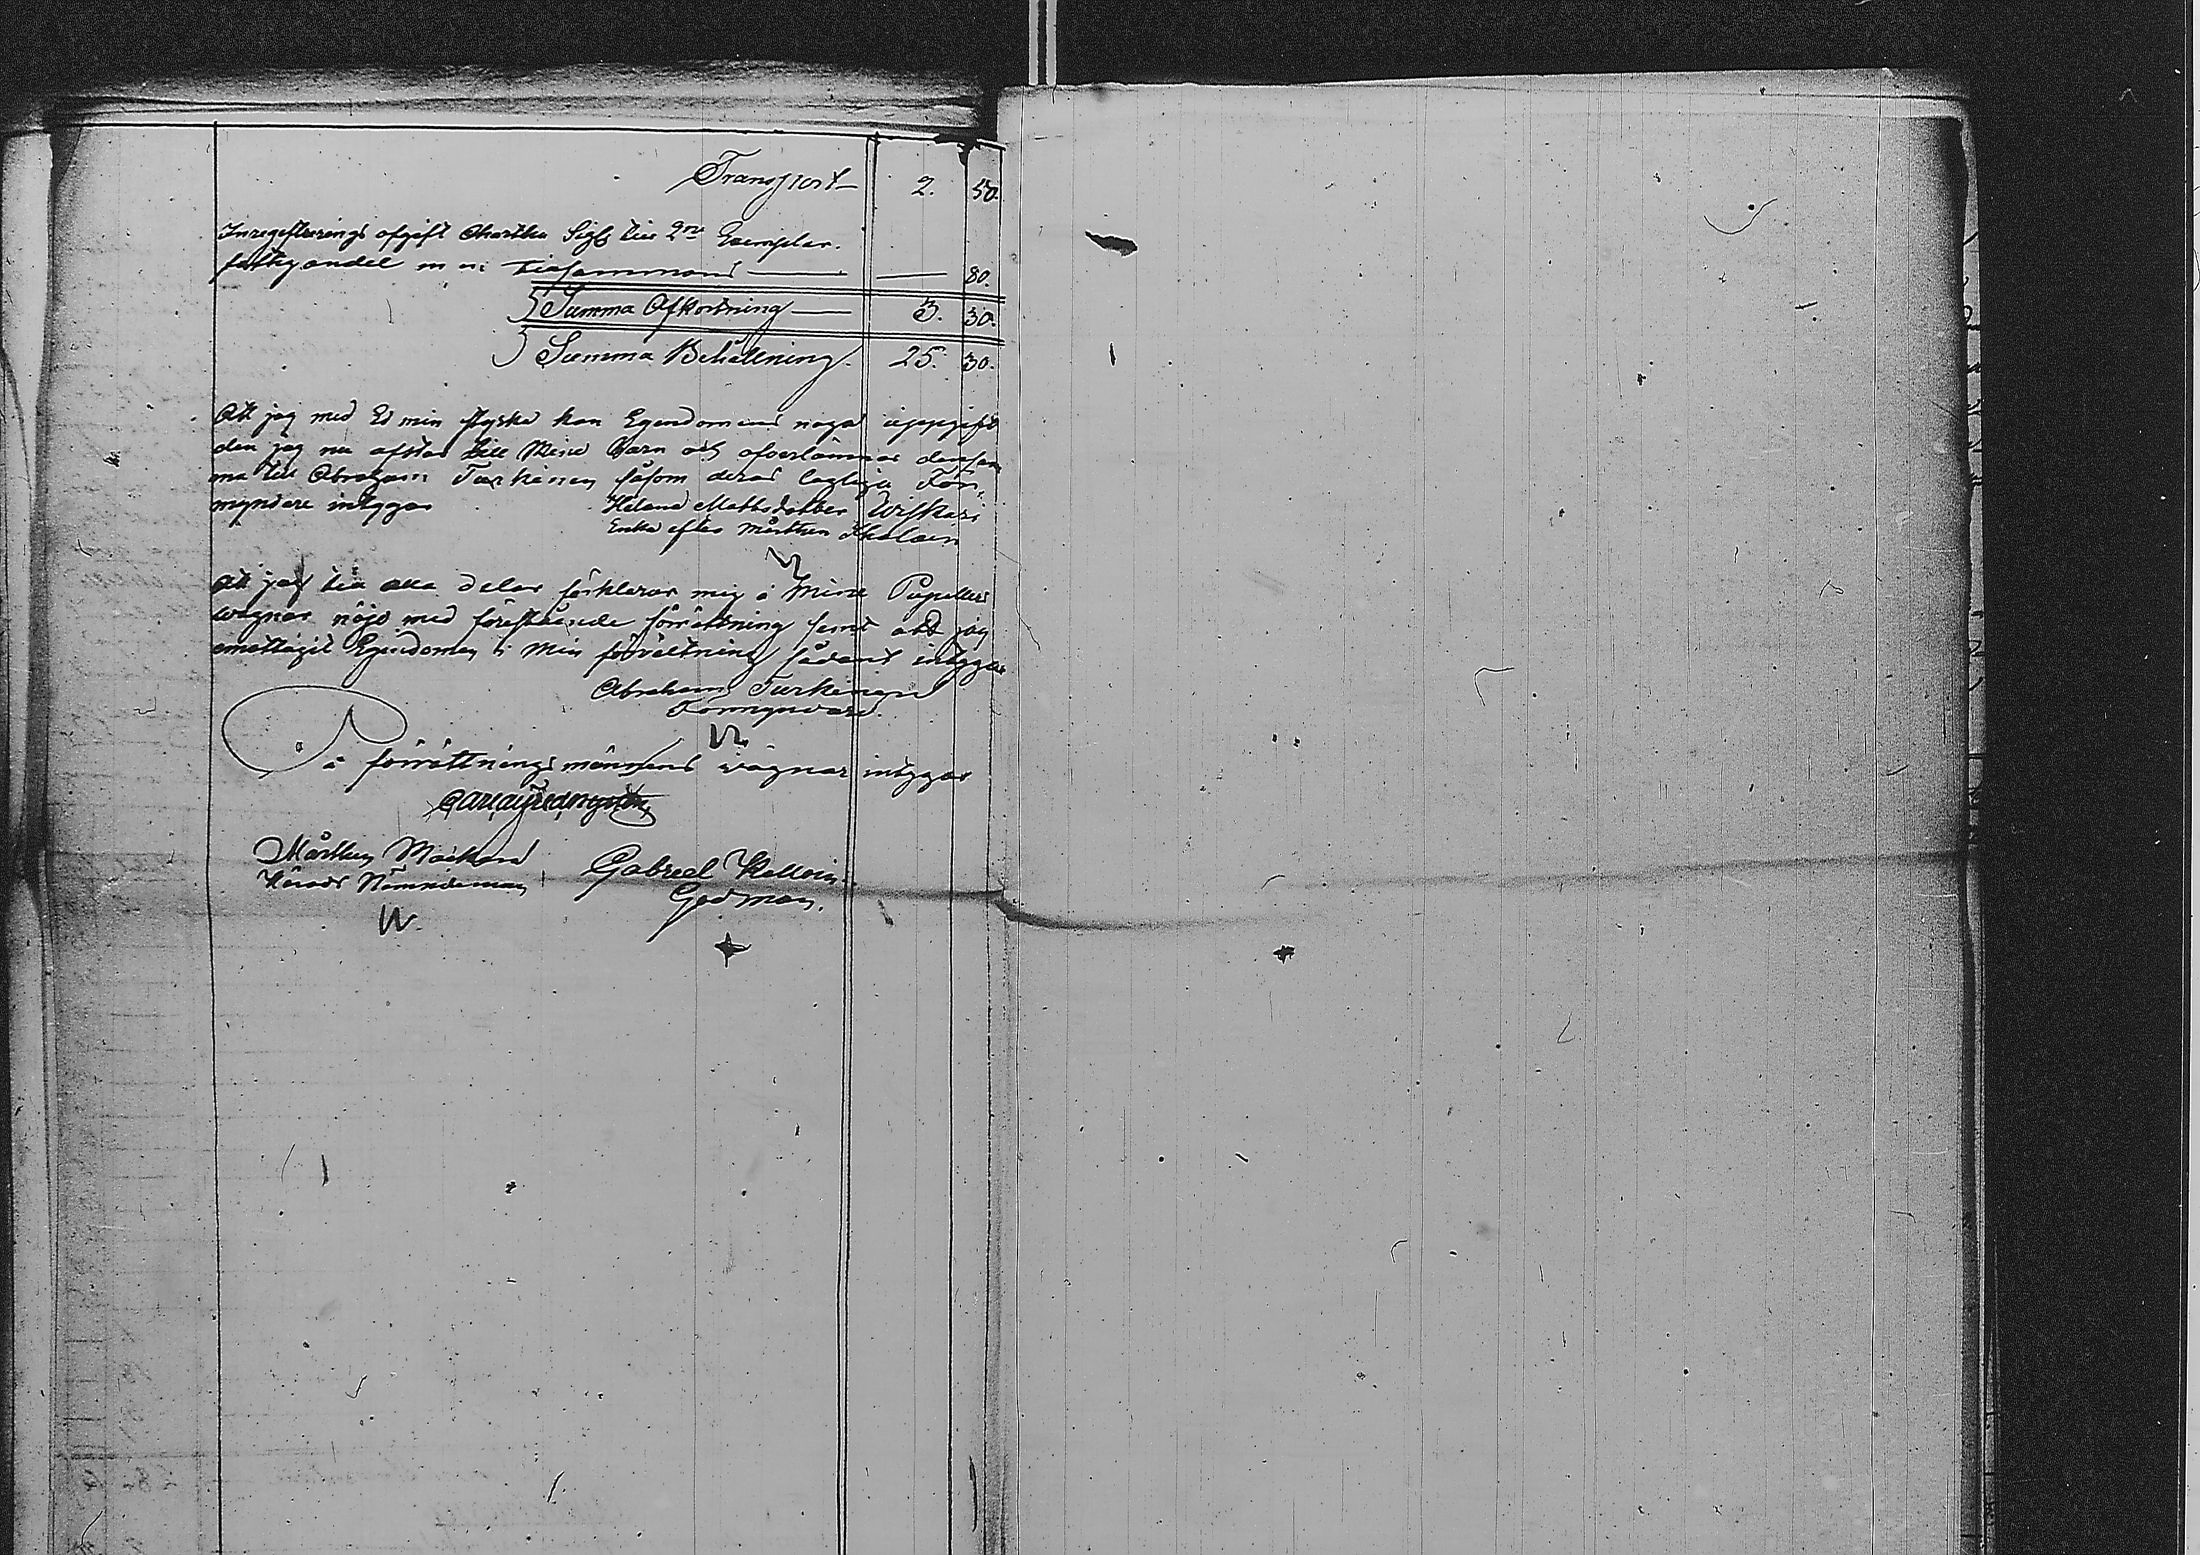 Transport 2. 50.
Inregistrerings afgift Chartha Sigt till 2ne Exemplar.
fattigandel m m: tillsammans — — 80.
Summa Afkortning — 3. 30.
Summa Behållning. 25. 30.
Att jag med Ed min styrka kan Egendomens noga uppgift
den jag nu afstår till Mina Barn och öfverlämnar densam
ma till Abraham Turkinen såsom deras lagliga För-
myndare intygar Helena Mattsdotter Wiskari
Enka efter Mårthen Ikalain
Att jag till alla delar förklarar mig å Mine Pupillers
wägnar nöjd med föreståënde förrättning samt att jag
emottagit Egendomen i Min förvaltning sådant intygar
Abraham Turkinen
Förmyndare.
På förrättningsmännens vägnar intygar
Mårthen
Härads Nämndeman
Gabriel
Godman.